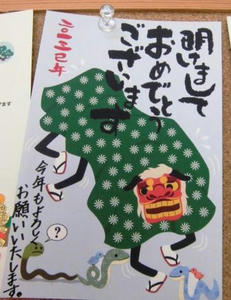 明けまして
おめでとう
ございます
二〇二五巳年
今年もよろしく
お願いいたします。
?